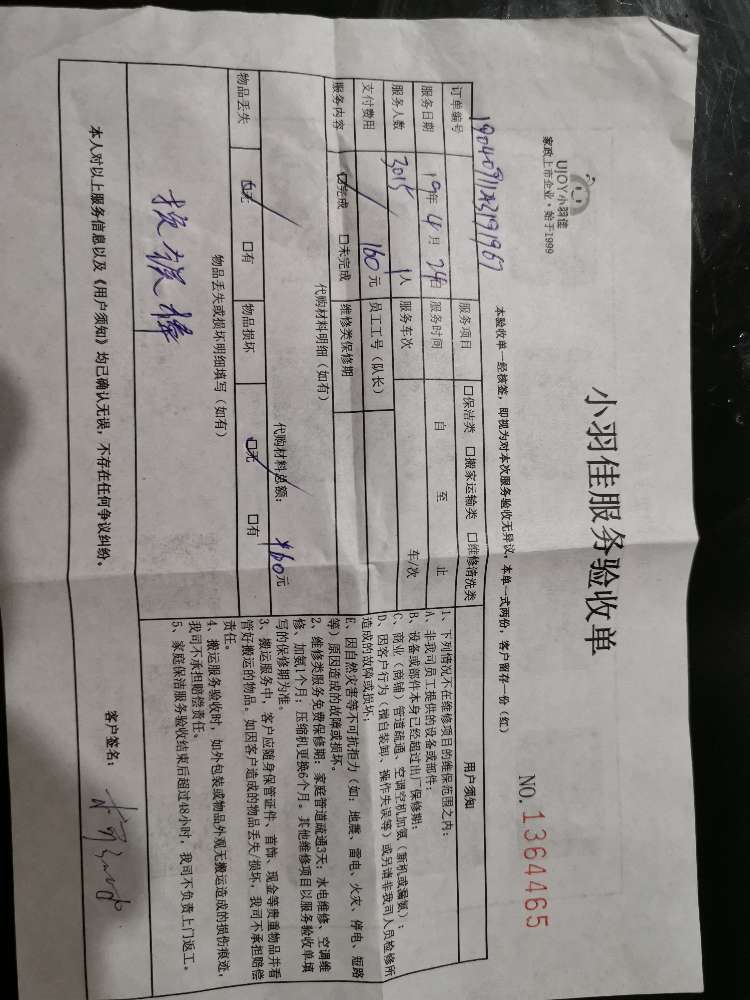 UJOY小羽佳
家政上市企业·始于1999
小羽佳服务验收单
NO. 1364465
本验收单一经核签，即视为对本次服务验收无异议，本单一式两份，客户留存一份（红）
订单编号
服务项目 □保洁类 □搬家运输类 □维修清洗类
服务日期 19年 4月 24日 服务时间 自 至 止
服务人数 1人 服务车次 车/次
支付费用 160元 员工工号（队长） 3015
服务内容 ☑完成 □未完成 维修类保修期
代购材料明细（如有）
代购材料总额： ¥160元
物品丢失 ☑无 □有 物品损坏 ☑无 □有
物品丢失或损坏明细填写（如有）
用户须知
1、下列情况不在维修项目的维保范围之内：
A、非我司员工提供的设备或部件；
B、设备或部件本身已经超过出厂保修期；
C、商业（商铺）管道疏通、空调空机加氨（新机或漏氨）；
D、因客户行为（擅自装卸、操作失误等）或另请非我司人员检修所
造成的故障或损坏；
E、因自然灾害等不可抗拒力（如：地震、雷电、火灾、停电、短路
等）原因造成的故障或损坏。
2、维修类服务免费保修期：家庭管道疏通3天；水电维修、空调维
修、加氨1个月；压缩机更换6个月。其他维修项目以服务验收单填
写的保修期为准。
3、搬运服务中，客户应随身保管证件、首饰、现金等贵重物品并看
管好搬运的物品。如因客户造成的物品丢失/损坏，我司不承担赔偿
责任。
4、搬运服务验收时，如外包装或物品外观无搬运造成的损伤痕迹，
我司不承担赔偿责任。
5、家庭保洁服务验收结束后超过48小时，我司不负责上门返工。
本人对以上服务信息以及《用户须知》均已确认无误，不存在任何争议纠纷。
客户签名：